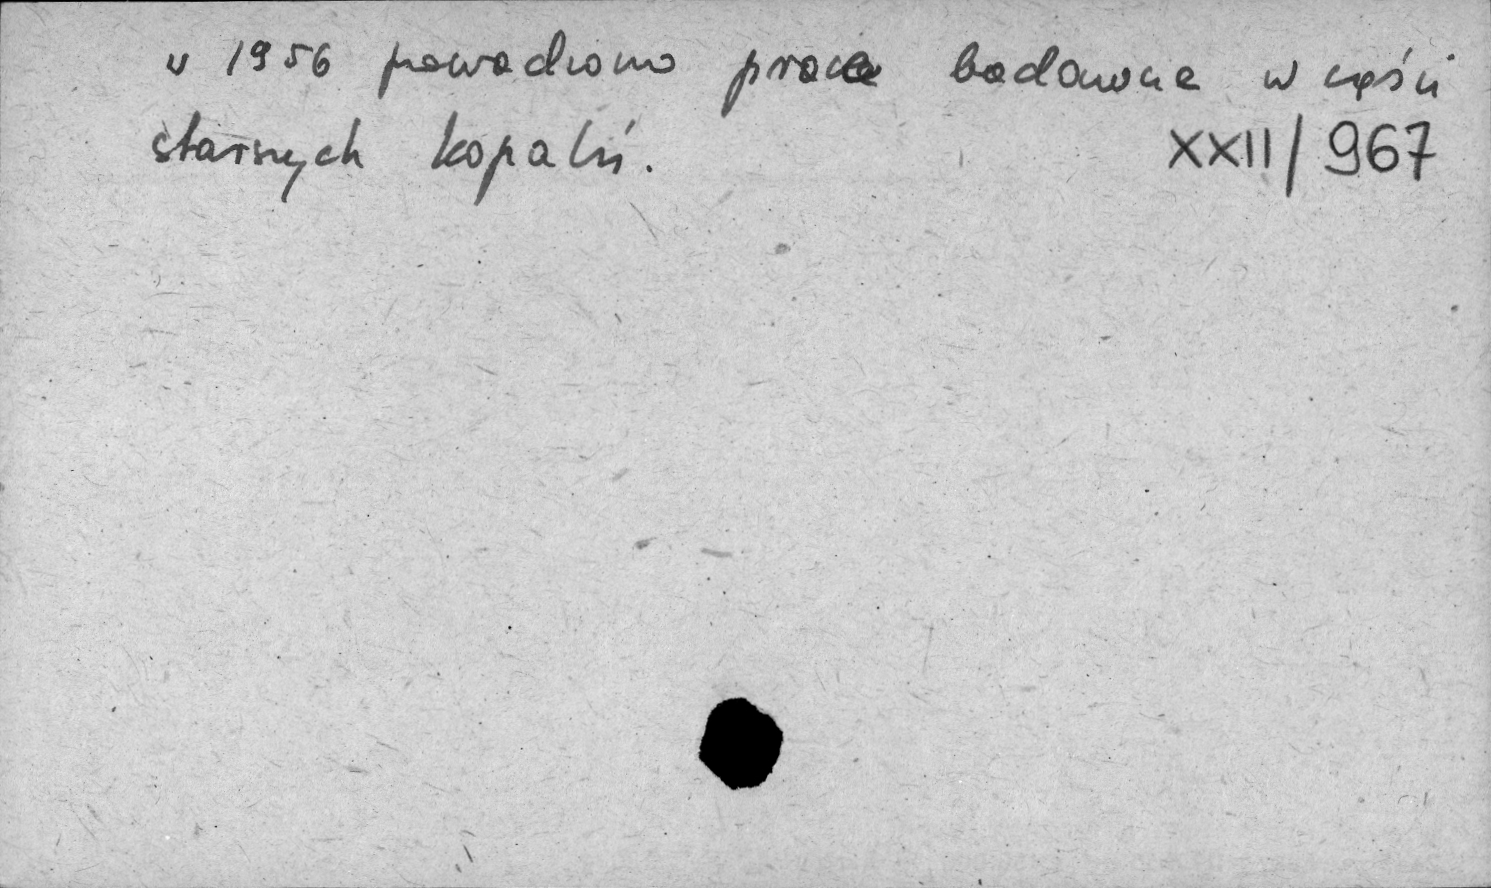 w 1956 prowadzono prace badawcze w części
starszych kopalń.
XXII/967